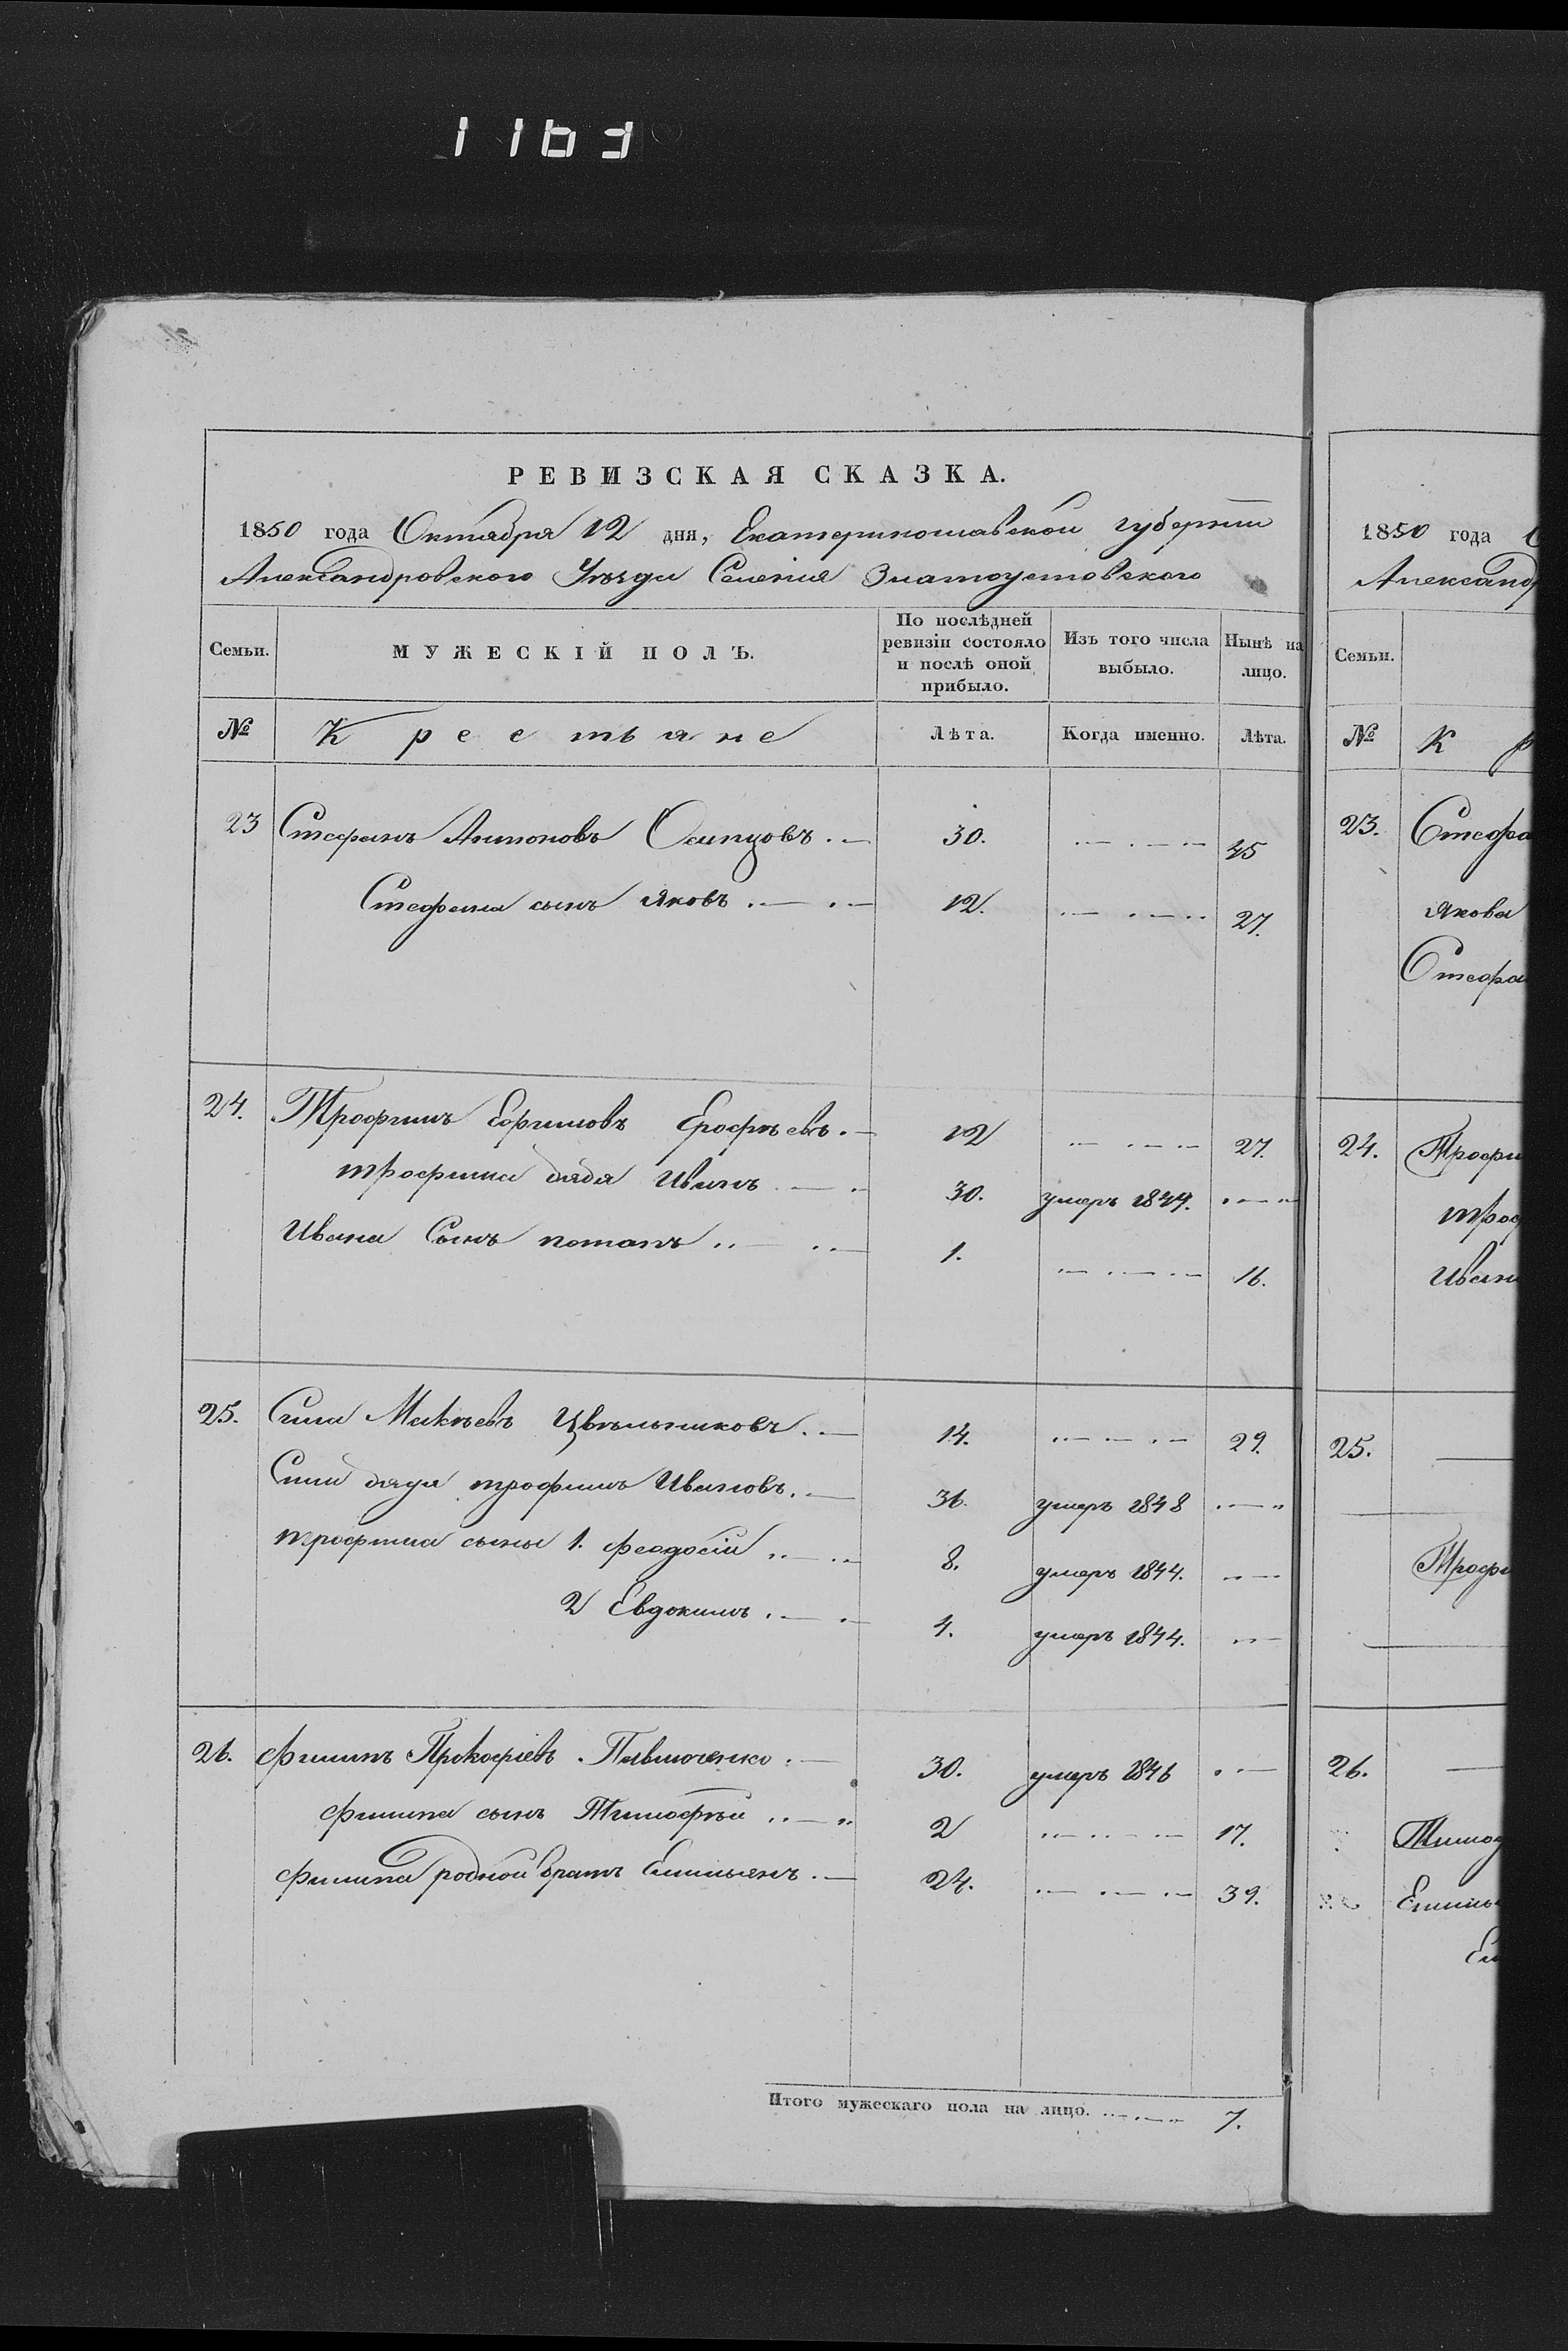 1163
РЕВИЗСКАЯ СКАЗКА.
1850 года Октября 12 дня, Екатеринославской губернии
Александровского Уѣзда Селенія Златоустовского
Семьи. МУЖЕСКІЙ ПОЛЪ. По послѣдней ревизіи состояло и послѣ оной прибыло. Изъ того числа выбыло. Нынѣ на лицо.
№ Крестьяне Лѣта. Когда именно. Лѣта.
23 Стефанъ Антоновъ 30. 45
Стефана сынъ Яковъ 12. 27.
24. Трофимъ Ефимовъ Ерофѣевъ 12 27.
трофима дядя Иванъ 30. умеръ 1849.
Ивана Сынъ потапъ 1. 16.
25. Сила Макѣевъ 14. 29.
Силы дядя трофимъ Ивановъ. 36. умеръ 1848
трофима сыны 1. феодосій 8. умеръ 1844.
2 Евдокимъ 4. умеръ 1844.
26. филипъ Прокофіевъ Павлюченко 30. умеръ 1846
филипа сынъ Тимофѣй 2 17.
филипа родной братъ Емильянъ 24. 39.
Итого мужескаго пола на лицо. 7.
1850 года О
Александр
Семьи.
№ К р
23. Стефа
Якова
Стефа
24. Трофи
троф
Иван
25.
Трофи
26.
Тимоф
Емиль
Ем